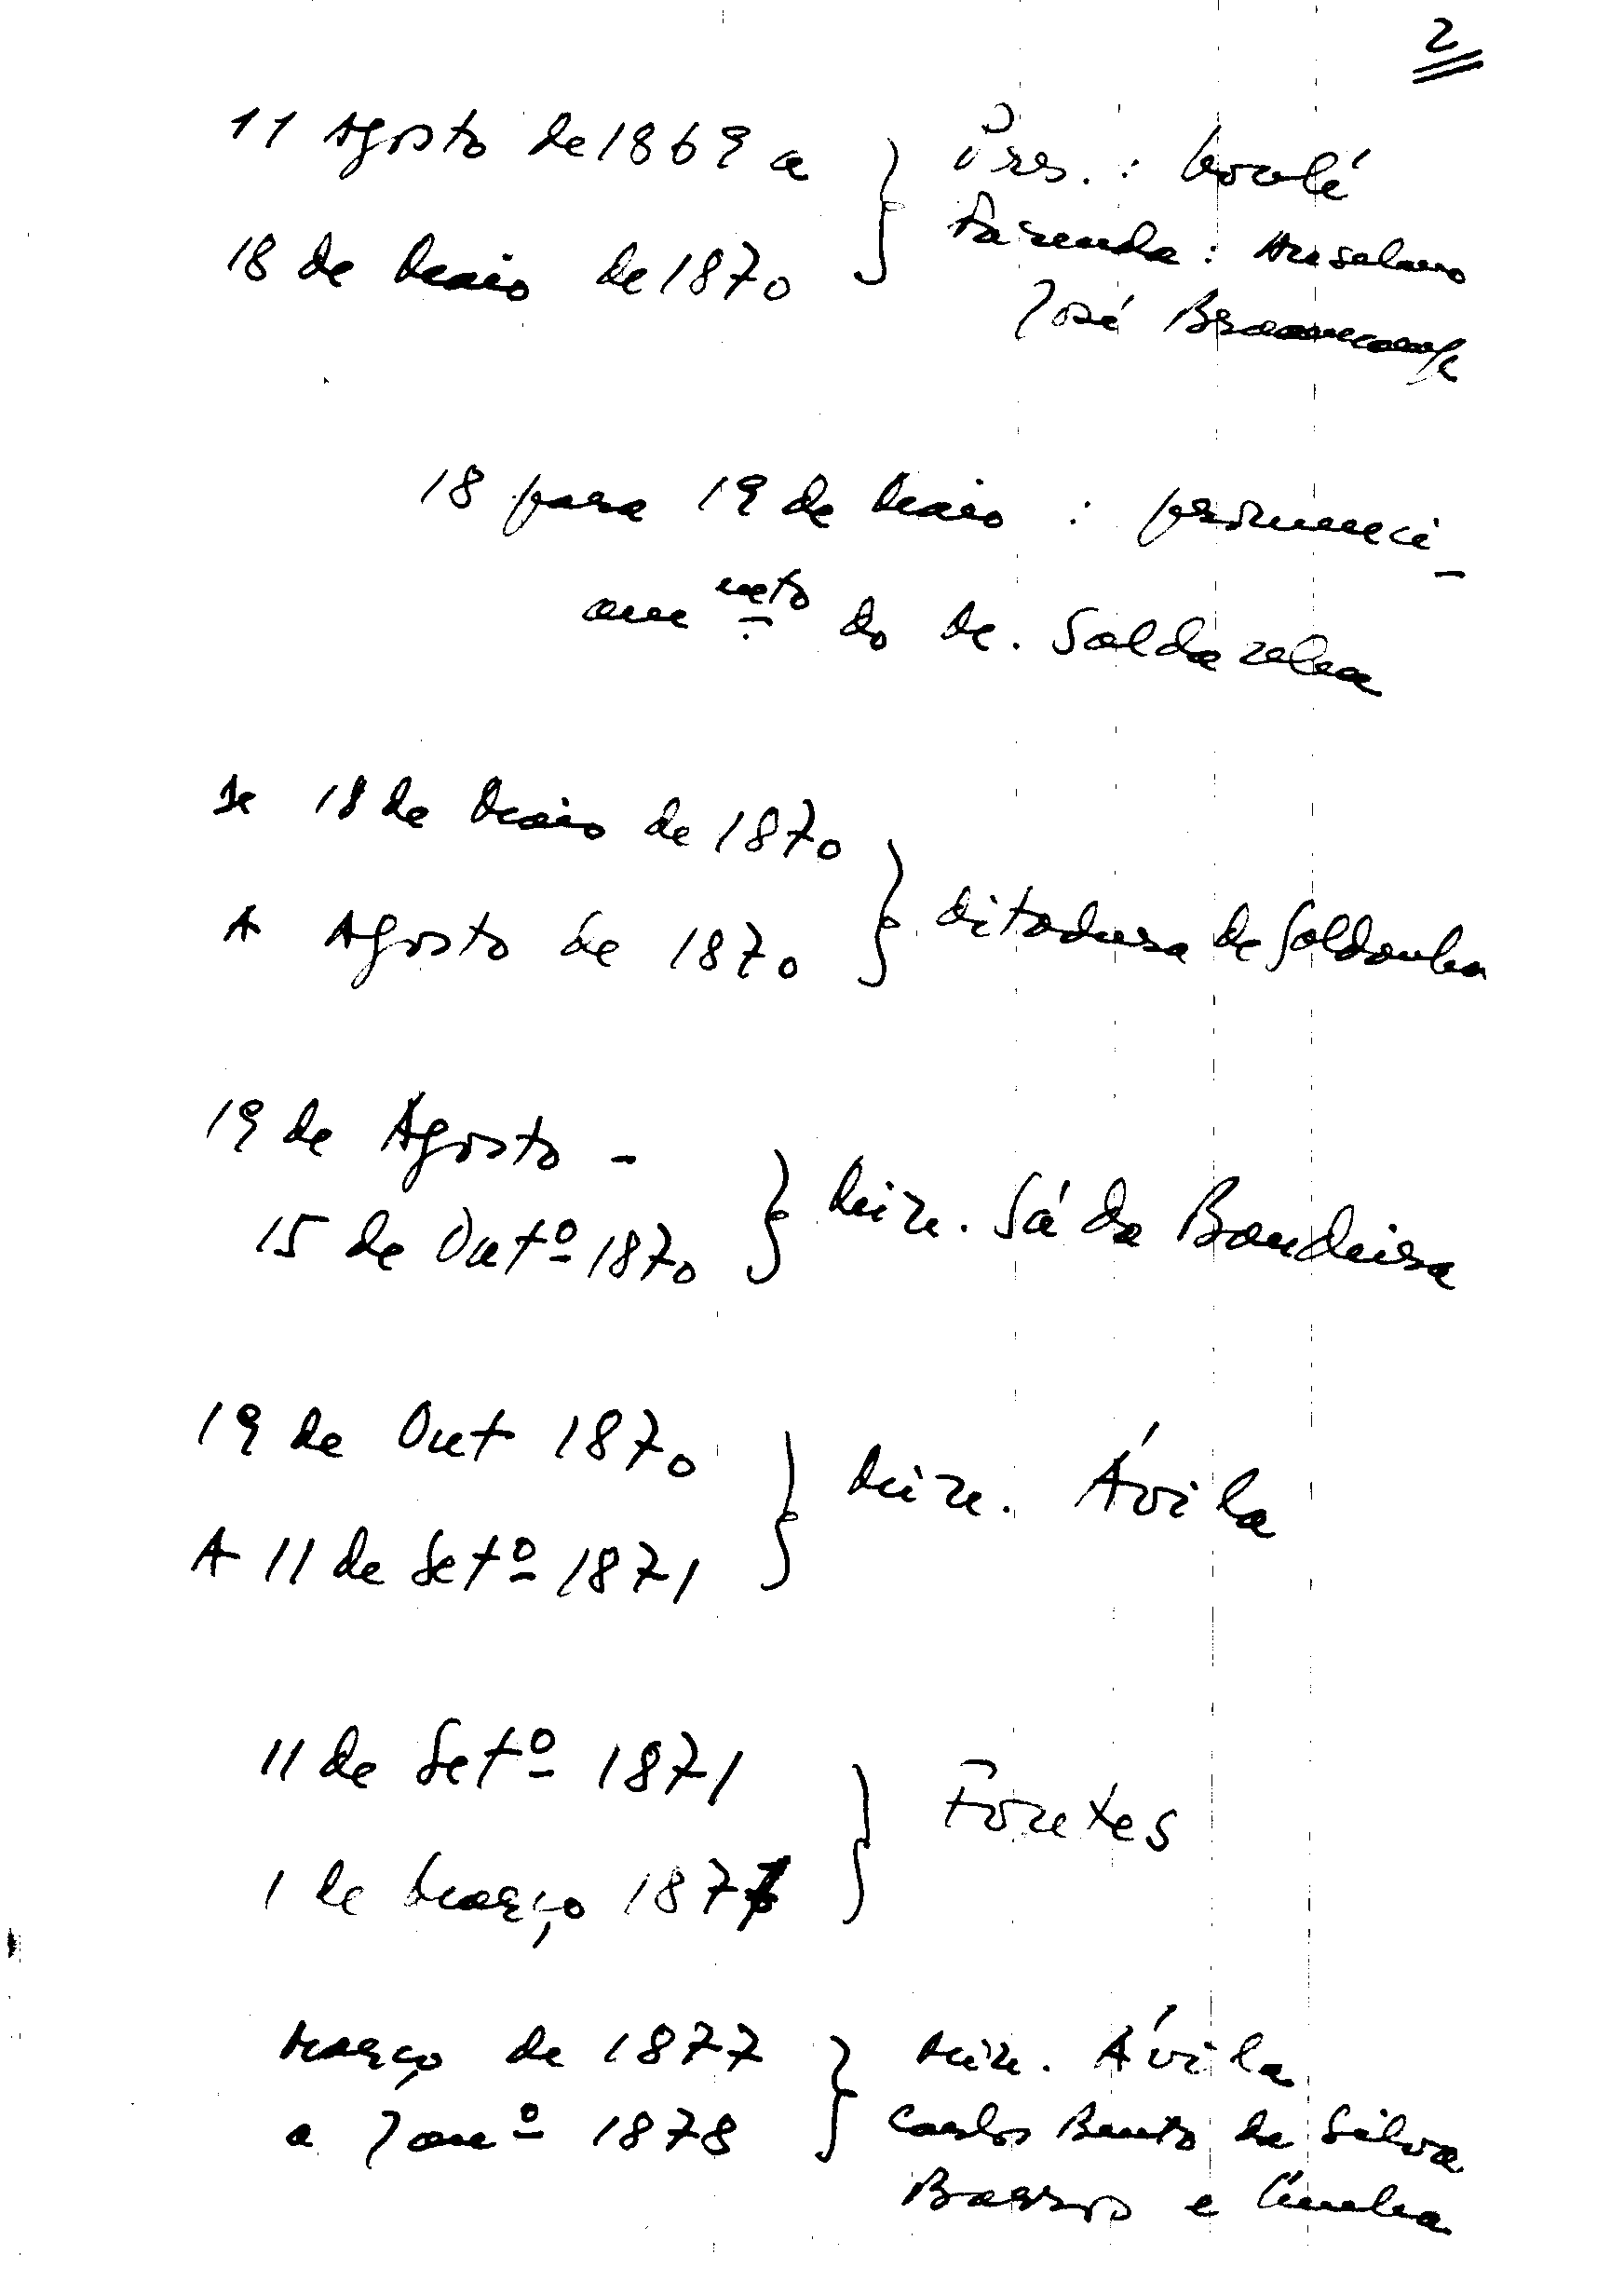 2
11 Agosto de 1869 a
18 de Maio de 1870
Pres. : Loulé
Fazenda : Anselmo
José Braamcamp
18 para 19 de Maio : pronunci-
amento do M. Saldanha
De 18 de Maio de 1870
A Agosto de 1870
ditadura de Saldanha
19 de Agosto -
15 de Outº 1870
Min. Sá da Bandeira
19 de Out 1870
A 11 de Setº 1871
Min. Ávila
11 de Setº 1871
1 de Março 1877
Fontes
Março de 1877
a Janº 1878
Min. Ávila
Carlos Bento da Silva
Barros e Cunha